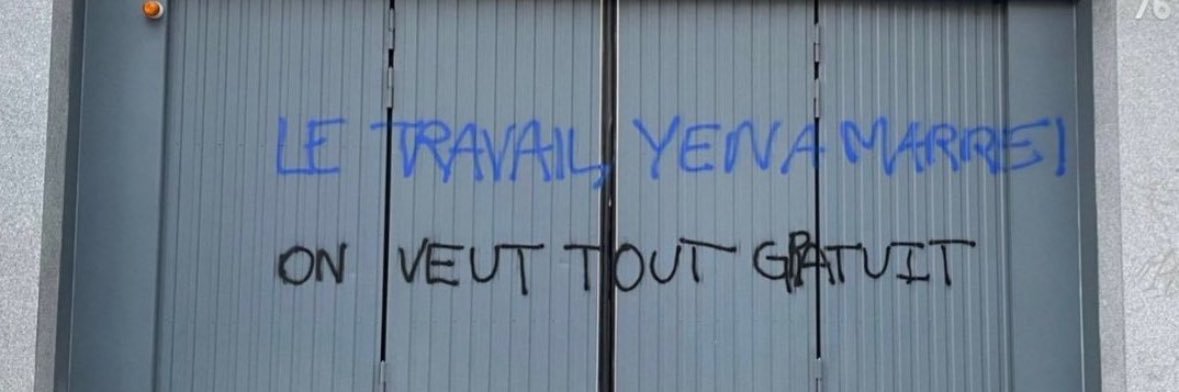 76
LE TRAVAIL, YEN A MARRE!
ON VEUT TOUT GRATUIT